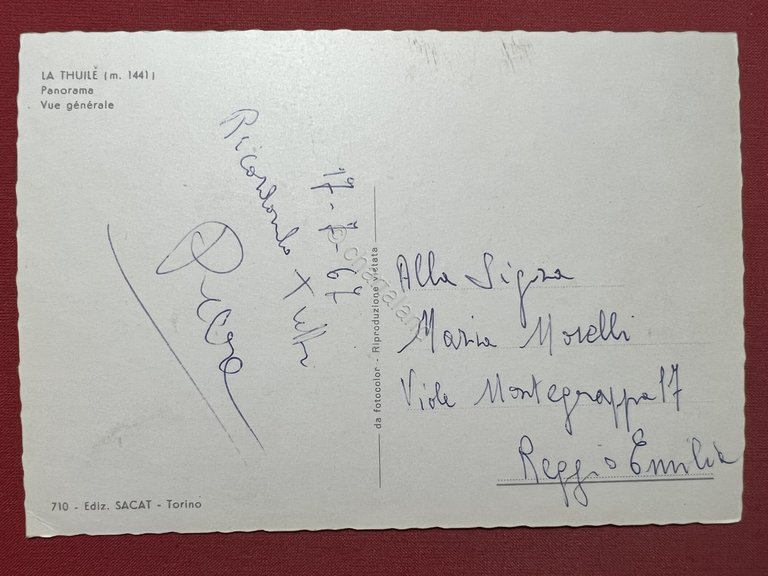 LA THUILE (m. 1441)
Panorama
Vue générale
17-7-67
Ricordando tutti
da fotocolor - Riproduzione vietata
Alla Sig.ra
Maria Morelli
Viale Montegrappa 17
Reggio Emilia
710 - Ediz. SACAT - Torino